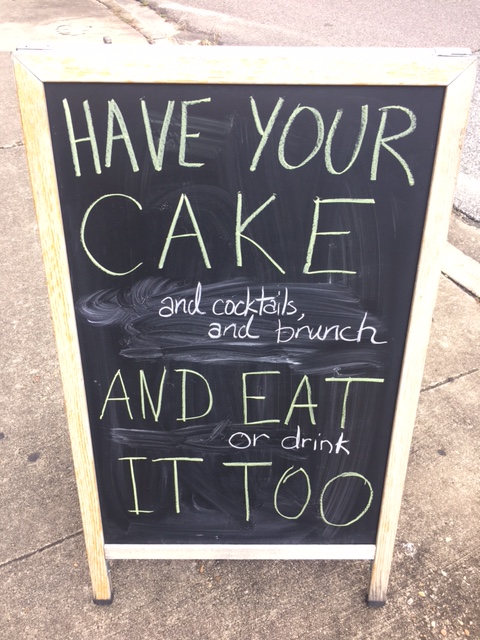 HAVE YOUR
CAKE
and cocktails,
and brunch
AND EAT
or drink
IT TOO